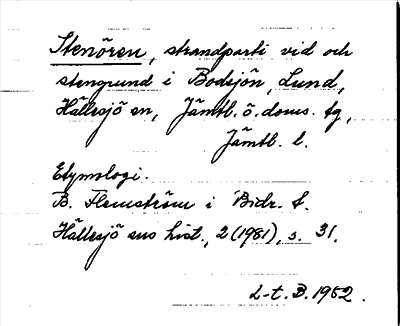 Stenören, strandparti vid och
stengrund i Bodsjön, Lund,
Hällesjö sn, Jämtl. ö. doms. tg,
Jämtl. l.
Etymologi.
B. Flemström i Bidr. t.
Hällesjö sns hist., 2 (1981), s. 31.
L-t. B. 1952.